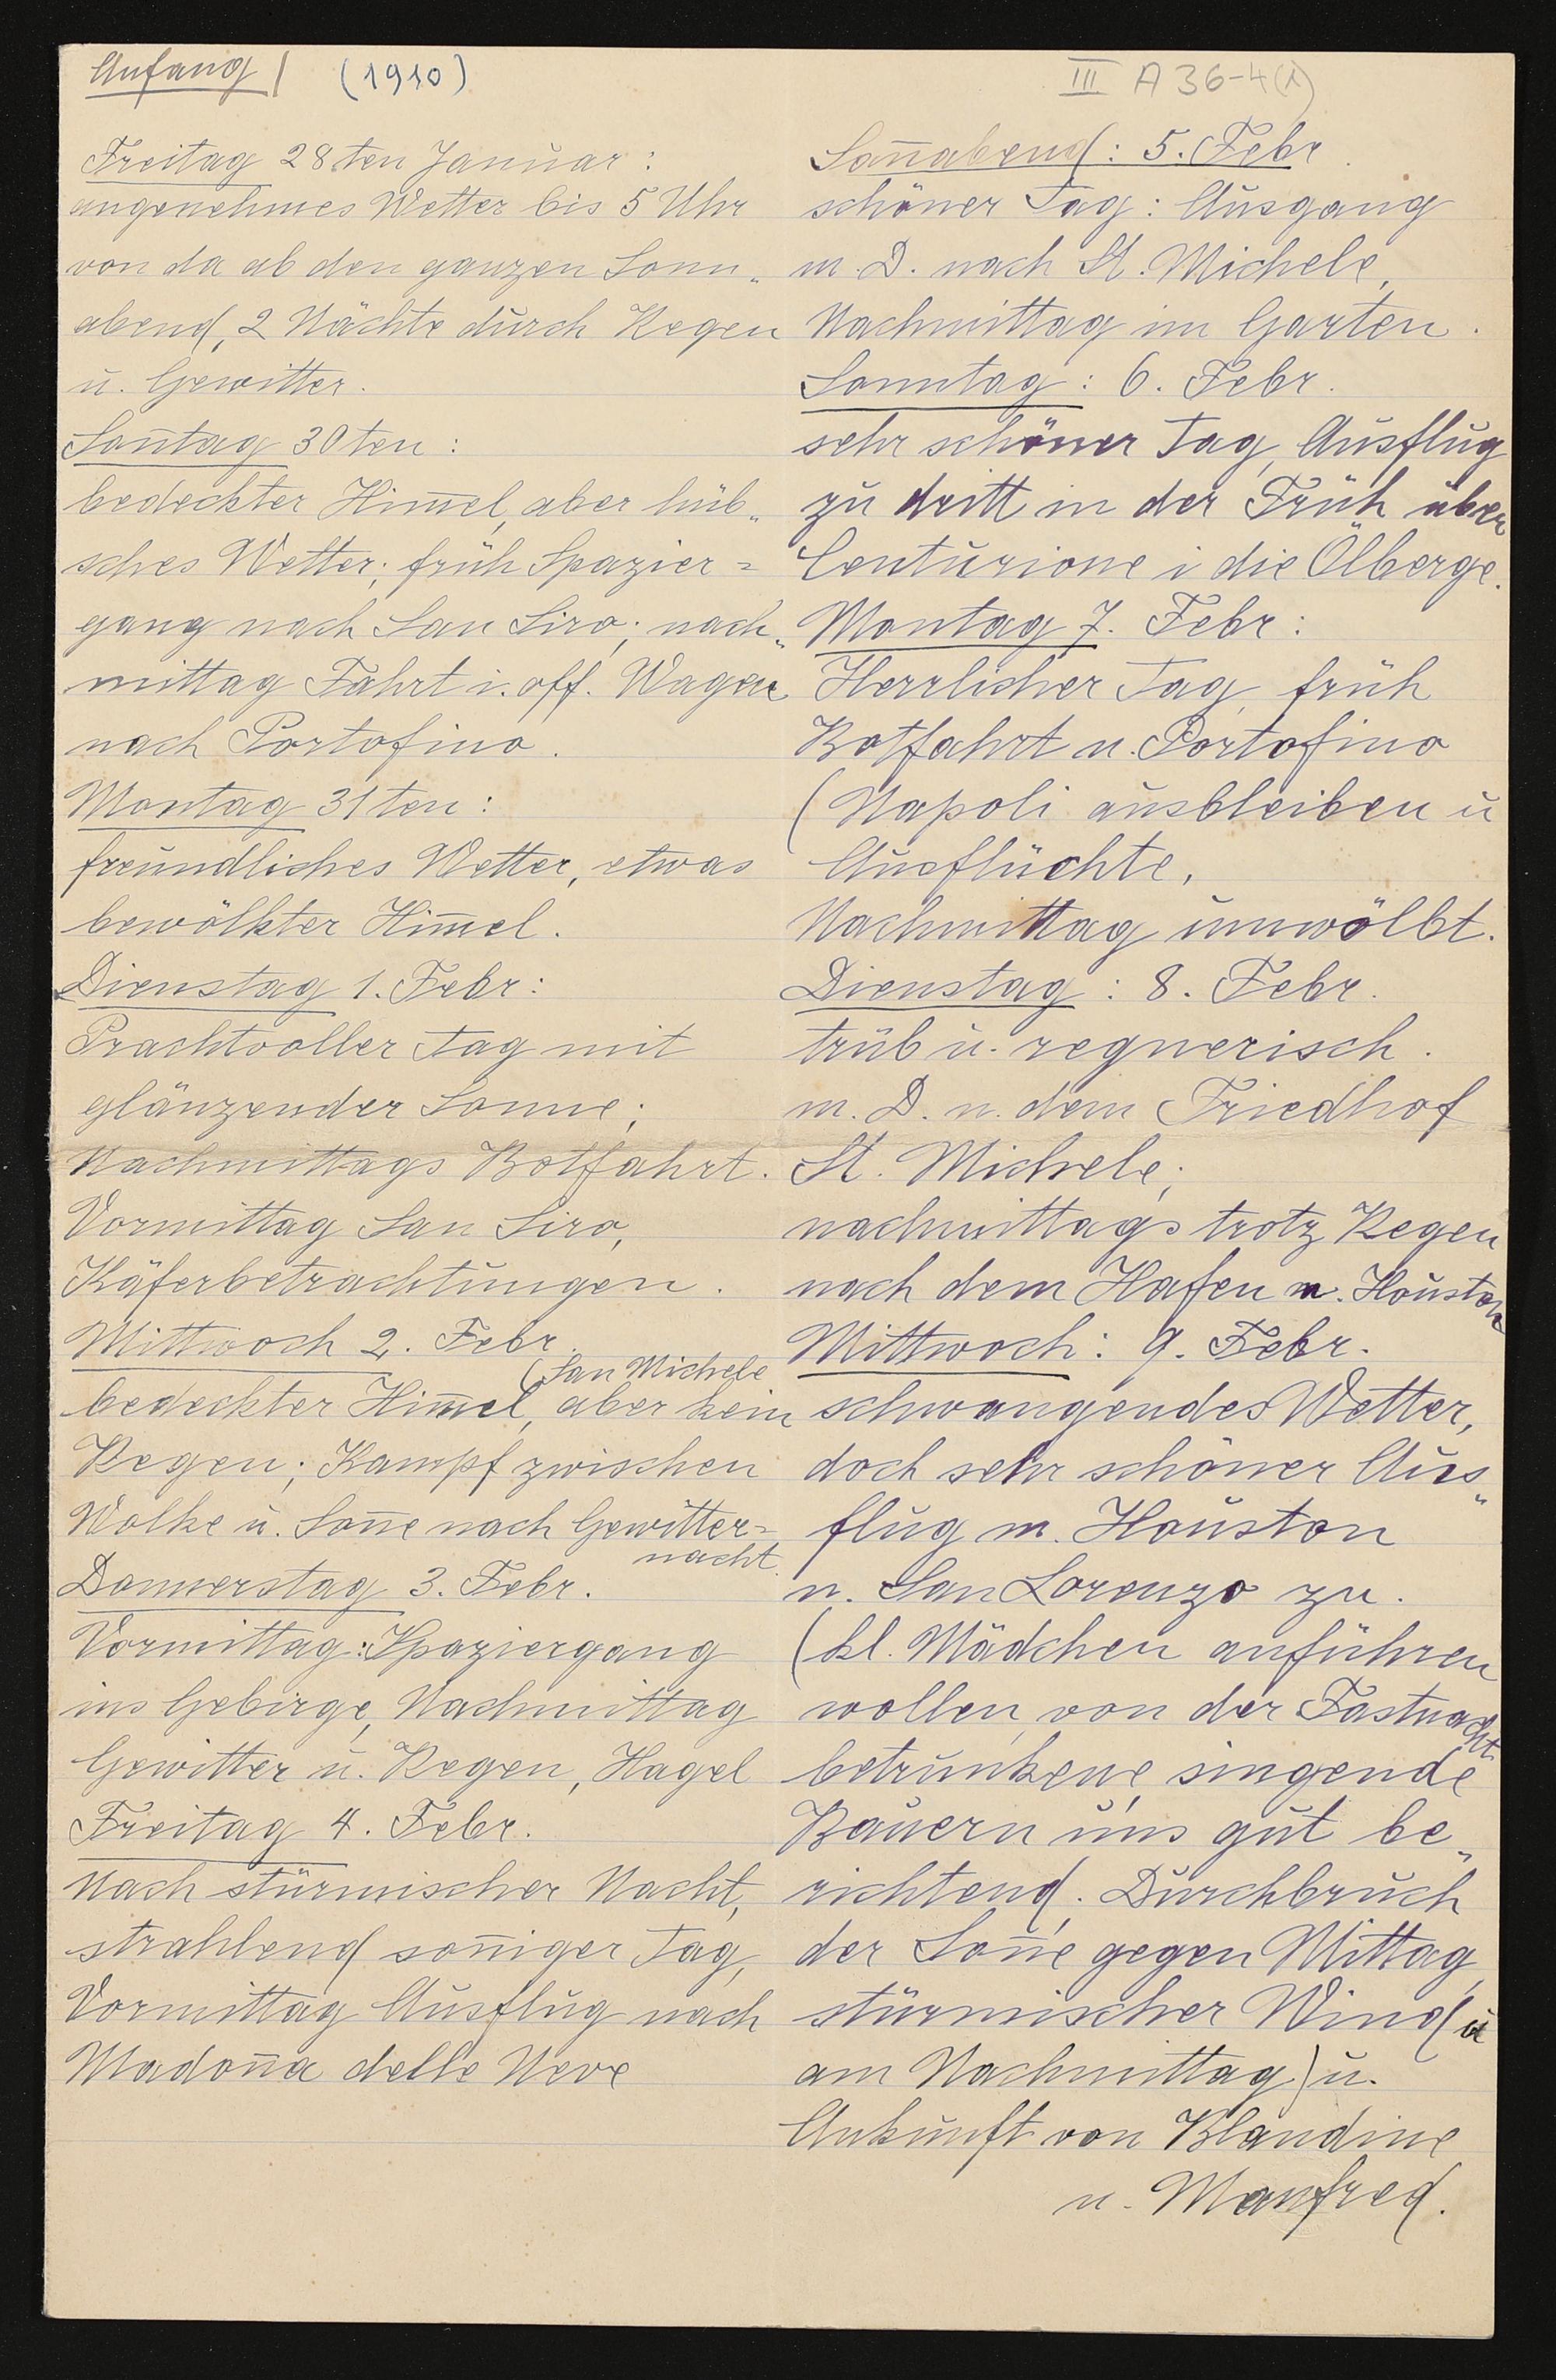 Anfang | (1910)
III A 36-4(1)
Freitag 28ten Januar:
angenehmes Wetter bis 5 Uhr
von da ab den ganzen Sonn„
abend, 2 Nächte durch Regen
u. Gewitter.
Son̄tag 30ten:
bedeckter Him̄el, aber hüb„
sches Wetter; früh Spazier=
gang nach San Siro; nach„
mittag Fahrt i. off. Wagen
nach Portofino.
Montag 31ten:
freundliches Wetter, etwas
bewölkter Him̄el.
Dienstag 1. Febr:
Prachtvoller Tag mit
glänzender Sonne;
Nachmittags Botfahrt.
Vormittag San Siro,
Käferbetrachtungen.
Mittwoch 2. Febr.
(San Michele
bedeckter Him̄el, aber kein
Regen; Kampf zwischen
Wolke u. Son̄e nach Gewitter=
nacht.
Donnerstag 3. Febr.
Vormittag: Spaziergang
ins Gebirge, Nachmittag
Gewitter u. Regen, Hagel
Freitag 4. Febr.
Nach stürmischer Nacht,
strahlend son̄iger Tag,
Vormittag Ausflug nach
Madon̄a delle Neve
Son̄abend: 5. Febr.
schöner Tag: Ausgang
m. D. nach St. Michele,
Nachmittag im Garten.
Sonntag: 6. Febr.
sehr schöner Tag, Ausflug
zu dritt in der Früh über
Centurione i die Ölberge.
Montag 7. Febr:
Herrlicher Tag, früh
Botfahrt n. Portofino
(Napoli ausbleiben u
Ausflüchte,
Nachmittag umwölbt.
Dienstag: 8. Febr.
trüb u. regnerisch.
m. D. n. dem Friedhof
St. Michele;
nachmittags trotz Regen
nach dem Hafen m. Houston
Mittwoch: 9. Febr.
schwangendes Wetter,
doch sehr schöner Aus„
flug m. Houston
n. San Lorenzo zu.
(kl. Mädchen anführen
wollen, von der Fastnacht
betrunkene, singende
Bauern uns gut be„
richtend. Durchbruch
der Son̄e gegen Mittag,
stürmischer Wind (u
am Nachmittag) u.
Ankunft von Blandine
u. Manfred.